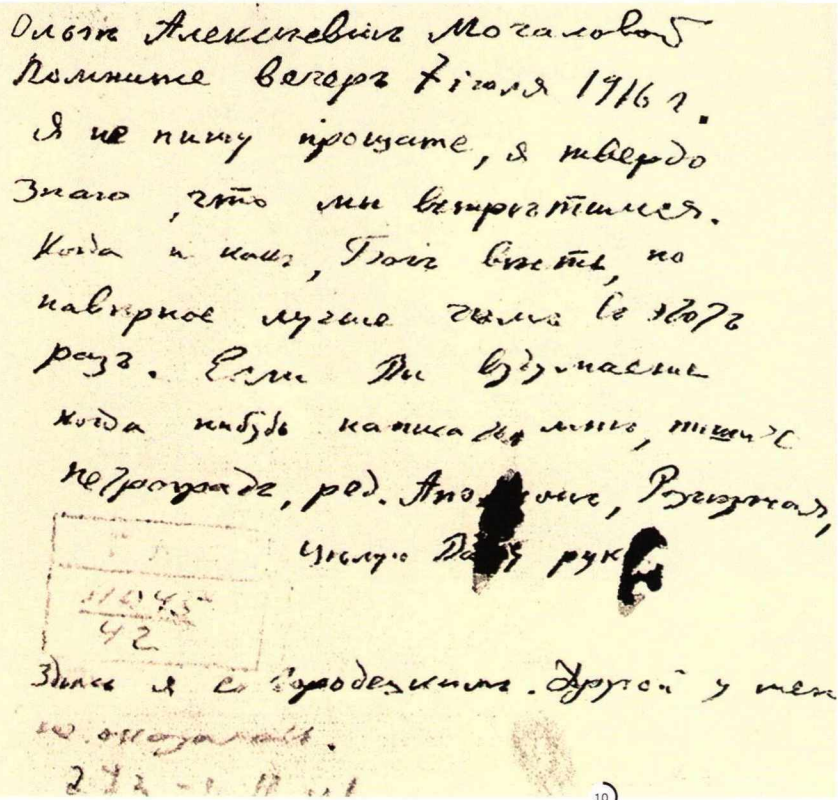 Ольгѣ Алексѣевнѣ Мочаловой
Помните вечеръ 7 iюля 1916 г.
Я не пишу прощайте, я твердо
знаю, что мы встрѣтимся.
Когда и какъ, Богъ вѣсть, но
навѣрное лучше чѣмъ въ этотъ
разъ. Если Вы вздумаете
когда нибудь написать мнѣ, пишите
Петроградъ, ред. Аполлонъ, Разъѣзжая,
Цѣлую Вашу руку
11045
42
Здѣсь я съ Городецкимъ. Другой у меня
не оказалось.
10